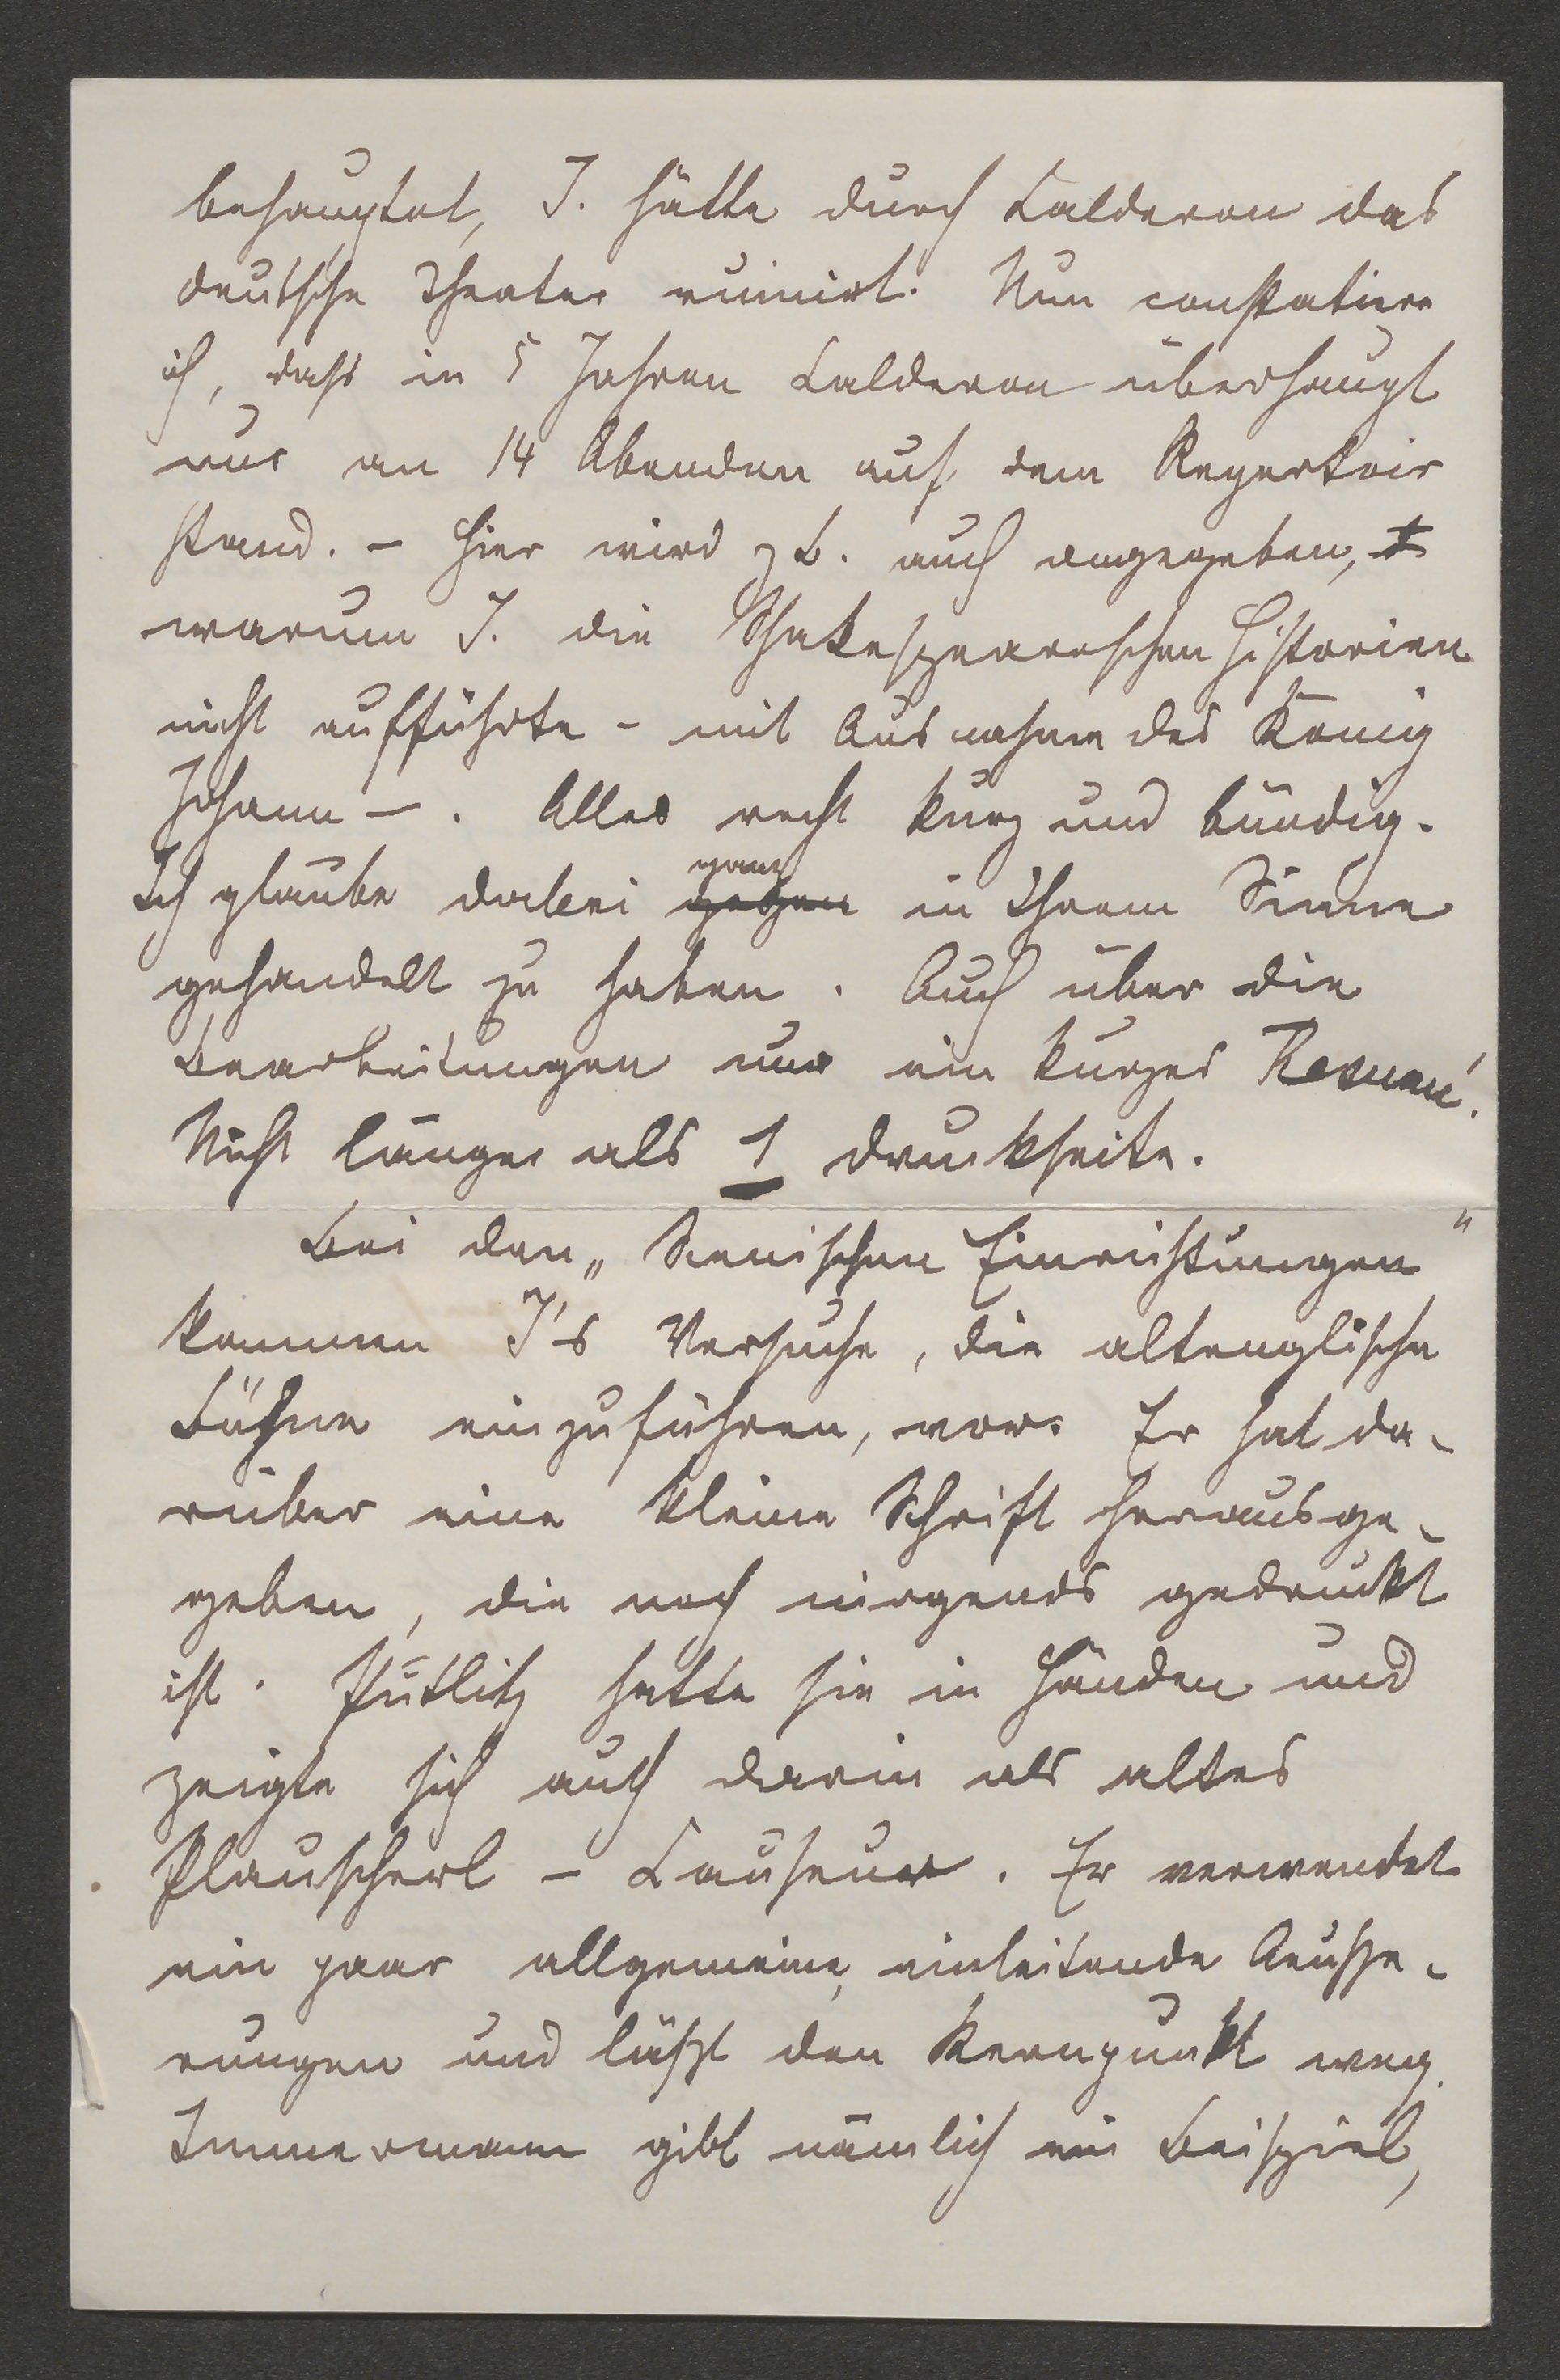 behauptet, I. hätte durch Calderon das
deutsche Theater ruinirt. Nun constatiere
ich, dass in 5 Jahren Calderon überhaupt
nur an 14 Abenden auf dem Repertoir
stand. – Hier wird z B. auch angegeben,
warum I. die Shakespeareschen Historien
nicht aufführte – mit Ausnahme des König
Johann – . Alles recht kurz und bündig.
Ich glaube dabei ganz in Ihrem Sinne
gehandelt zu haben. Auch über die
Bearbeitungen nur ein kurzes Resumé.
Nicht länger als 1 Druckseite.
Bei den „Scenischen Einrichtungen"
kommen I's Versuche, die altenglische
Bühne einzuführen, vor. Er hat da-
rüber eine kleine Schrift herausge-
geben, die noch nirgends gedruckt
ist. Putlitz hatte sie in Händen und
zeigte sich auch darin als altes
Plauscherl – Causeur. Er verwendet
ein paar allgemeine, einleitende Aeusse-
rungen und lässt den Kernpunkt weg.
Immermann gibt nämlich ein Beispiel,